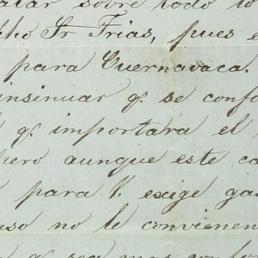 sobre todo lo
dho Sr Frias, pues e
para Cuernavaca.
insinuar q. se confo
q. importara el
pero aunque este ca
para l. exige gas
uso no le convienen
q. sea mas confor